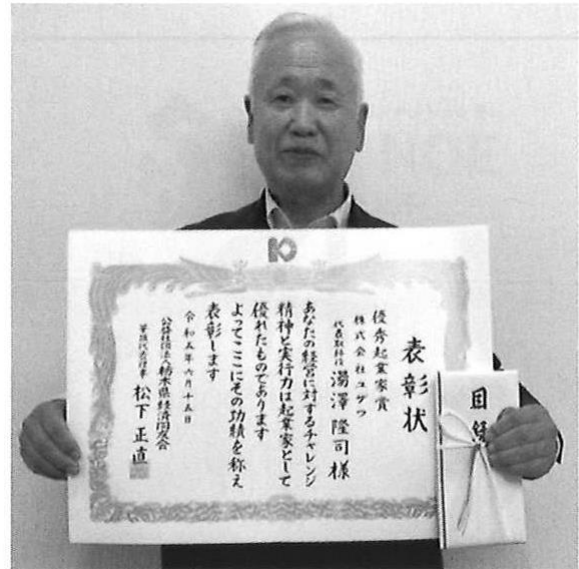 表彰状
優秀起業家賞
株式会社ユザワ
代表取締役 湯澤隆司様
あなたの経営に対するチャレンジ
精神と実行力は起業家として
優れたものであります
よってここにその功績を称え
表彰します
令和五年六月十五日
公益社団法人栃木県経済同友会
筆頭代表理事 松下正直
目録